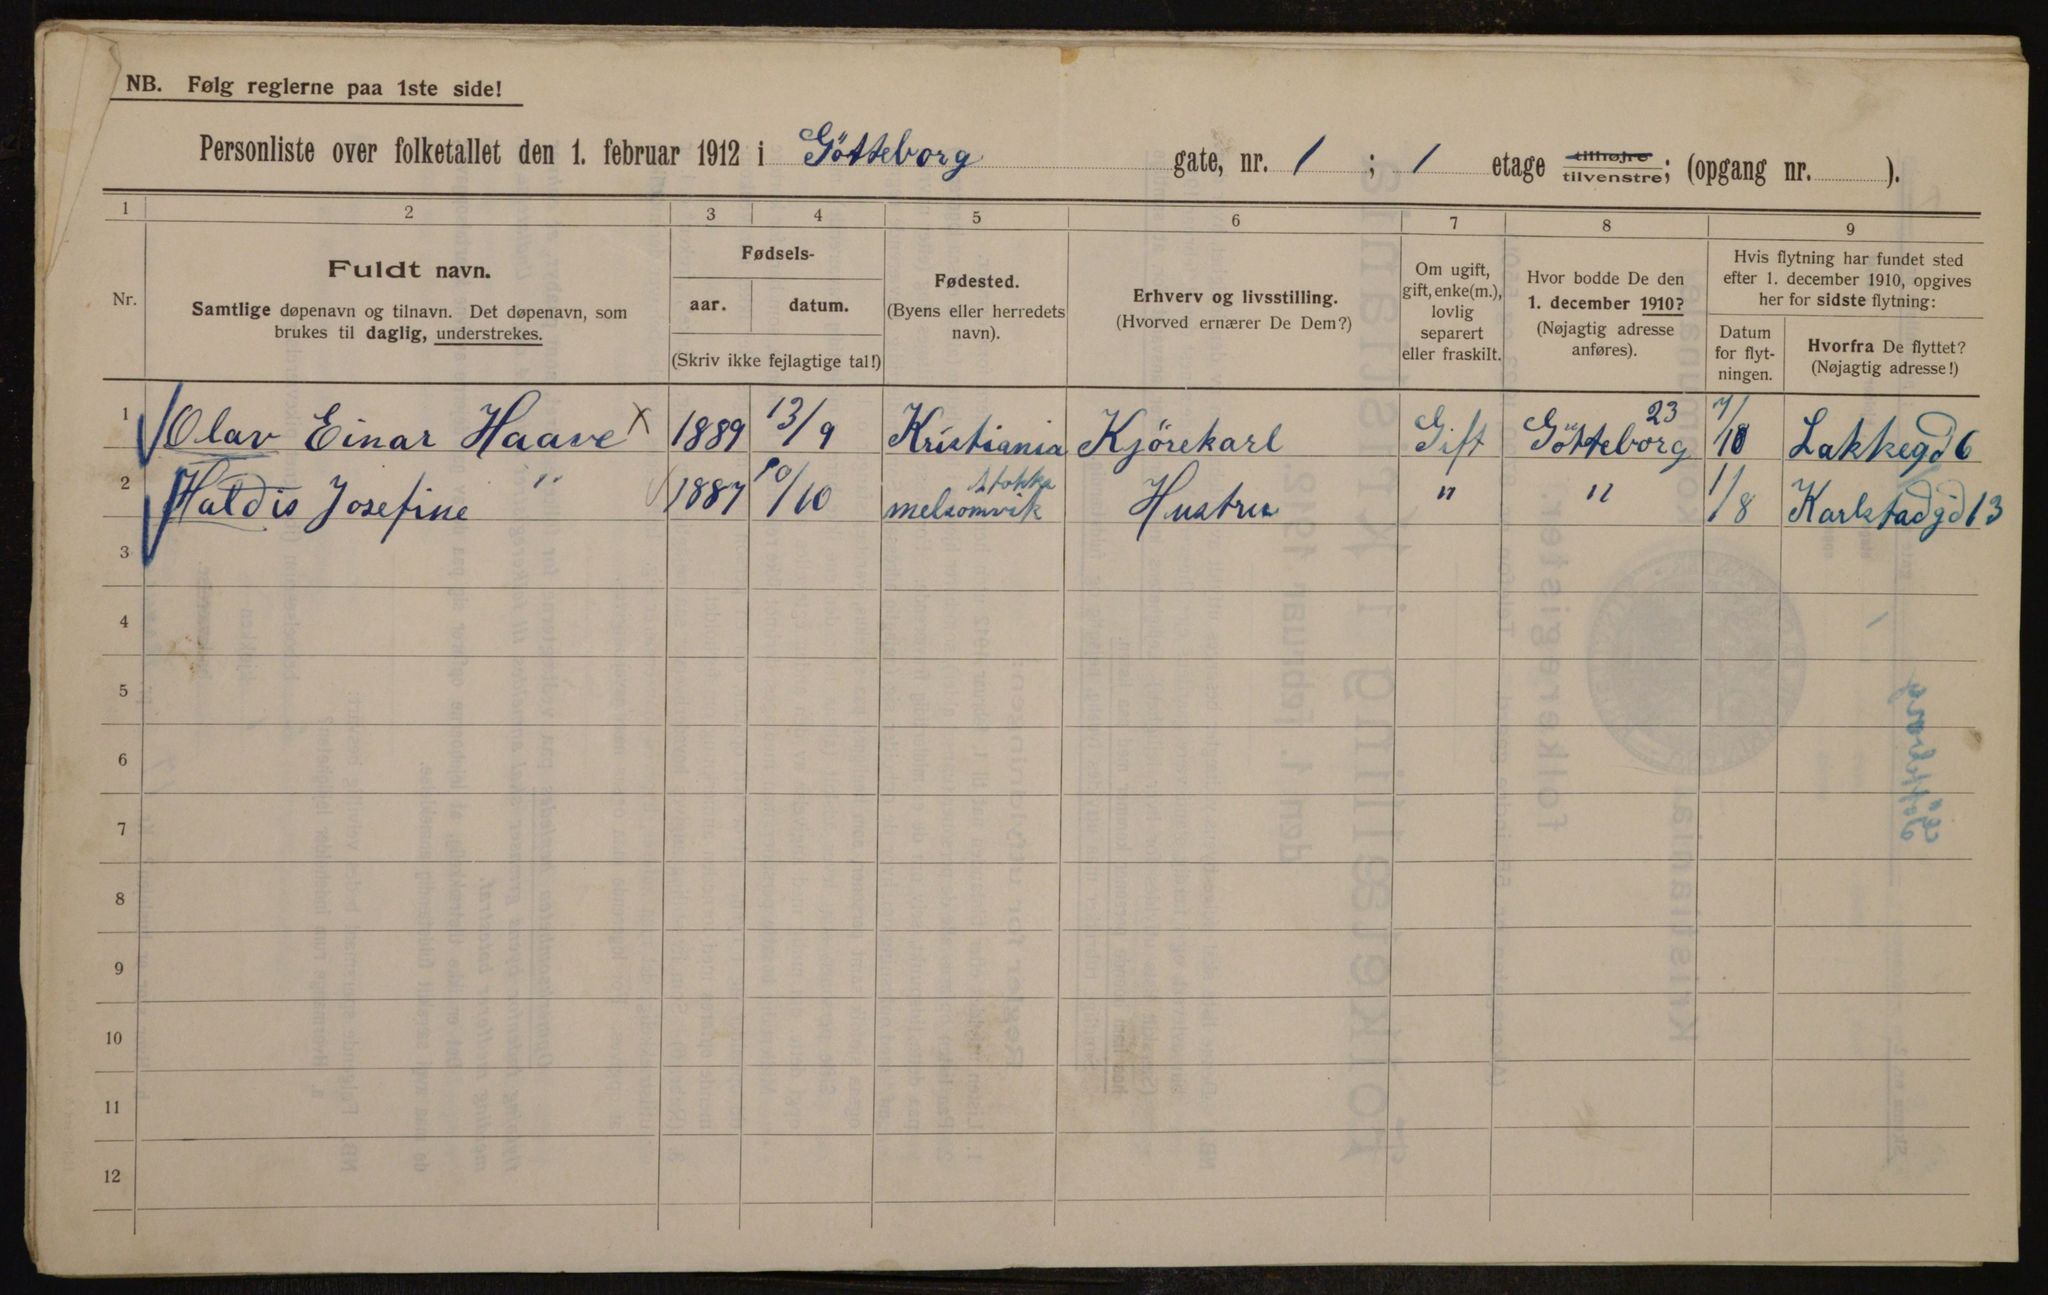 NB. Følg reglerne paa 1ste side!
Personliste over folketallet den 1. februar 1912 i Götteborg gate, nr. 1 ; 1 etage tilhøjre tilvenstre; (opgang nr. ).
1 2 3 4 5 6 7 8 9
Nr.
Fuldt navn.
Samtlige døpenavn og tilnavn. Det døpenavn, som
brukes til daglig, understrekes.
Fødsels-
aar. datum.
(Skriv ikke fejlagtige tal!)
Fødested.
(Byens eller herredets
navn).
Erhverv og livsstilling.
(Hvorved ernærer De Dem?)
Om ugift,
gift, enke(m.),
lovlig
separert
eller fraskilt.
Hvor bodde De den
1. december 1910?
(Nøjagtig adresse
anføres).
Hvis flytning har fundet sted
efter 1. december 1910, opgives
her for sidste flytning:
Datum
for flyt-
ningen.
Hvorfra De flyttet?
(Nøjagtig adresse!)
1 Olav Einar Haave x 1889 13/9 Kristiania Kjörekarl Gift Götteborg 23 Lakkegd 6
2 Haldis Josefine " 1887 10/10 Stokke melsomvik Hustru " " 1/8 Karlstadgd 13
3
4
5
6
7
8
9
10
11
12